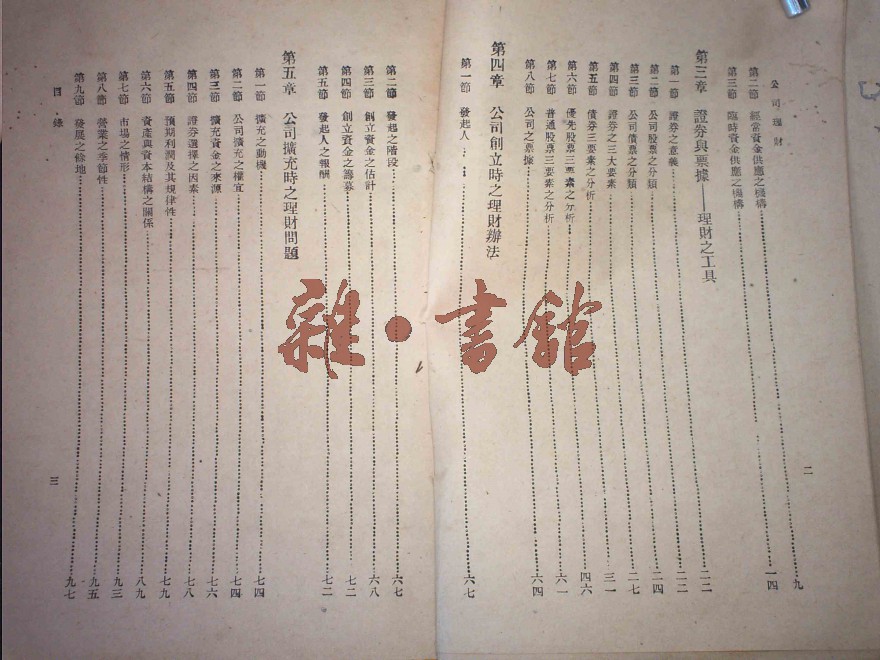 公司理財
二
第二節 經常資金供應之機構 九
第三節 臨時資金供應之機構 一四
第三章 證券與票據——理財之工具
第一節 證券之意義 二二
第二節 公司股票之分類 二二
第三節 公司債票之分類 二四
第四節 證券之三大要素 二七
第五節 債券三要素之分析 三一
第六節 優先股票三要素之分析 四六
第七節 普通股票三要素之分析 六一
第八節 公司之票據 六四
第四章 公司創立時之理財辦法
第一節 發起人 六七
第二節 發起之階段 六七
第三節 創立資金之估計 六八
第四節 創立資金之籌募 七二
第五節 發起人之報酬 七二
第五章 公司擴充時之理財問題
第一節 擴充之動機 七四
第二節 公司擴充之權宜 七四
第三節 擴充資金之來源 七六
第四節 證券選擇之因素 七八
第五節 預期利潤及其規律性 七九
第六節 資產與資本結構之關係 八九
第七節 市場之情形 九三
第八節 營業之季節性 九五
第九節 發展之餘地 九七
目錄
三
雜·書館